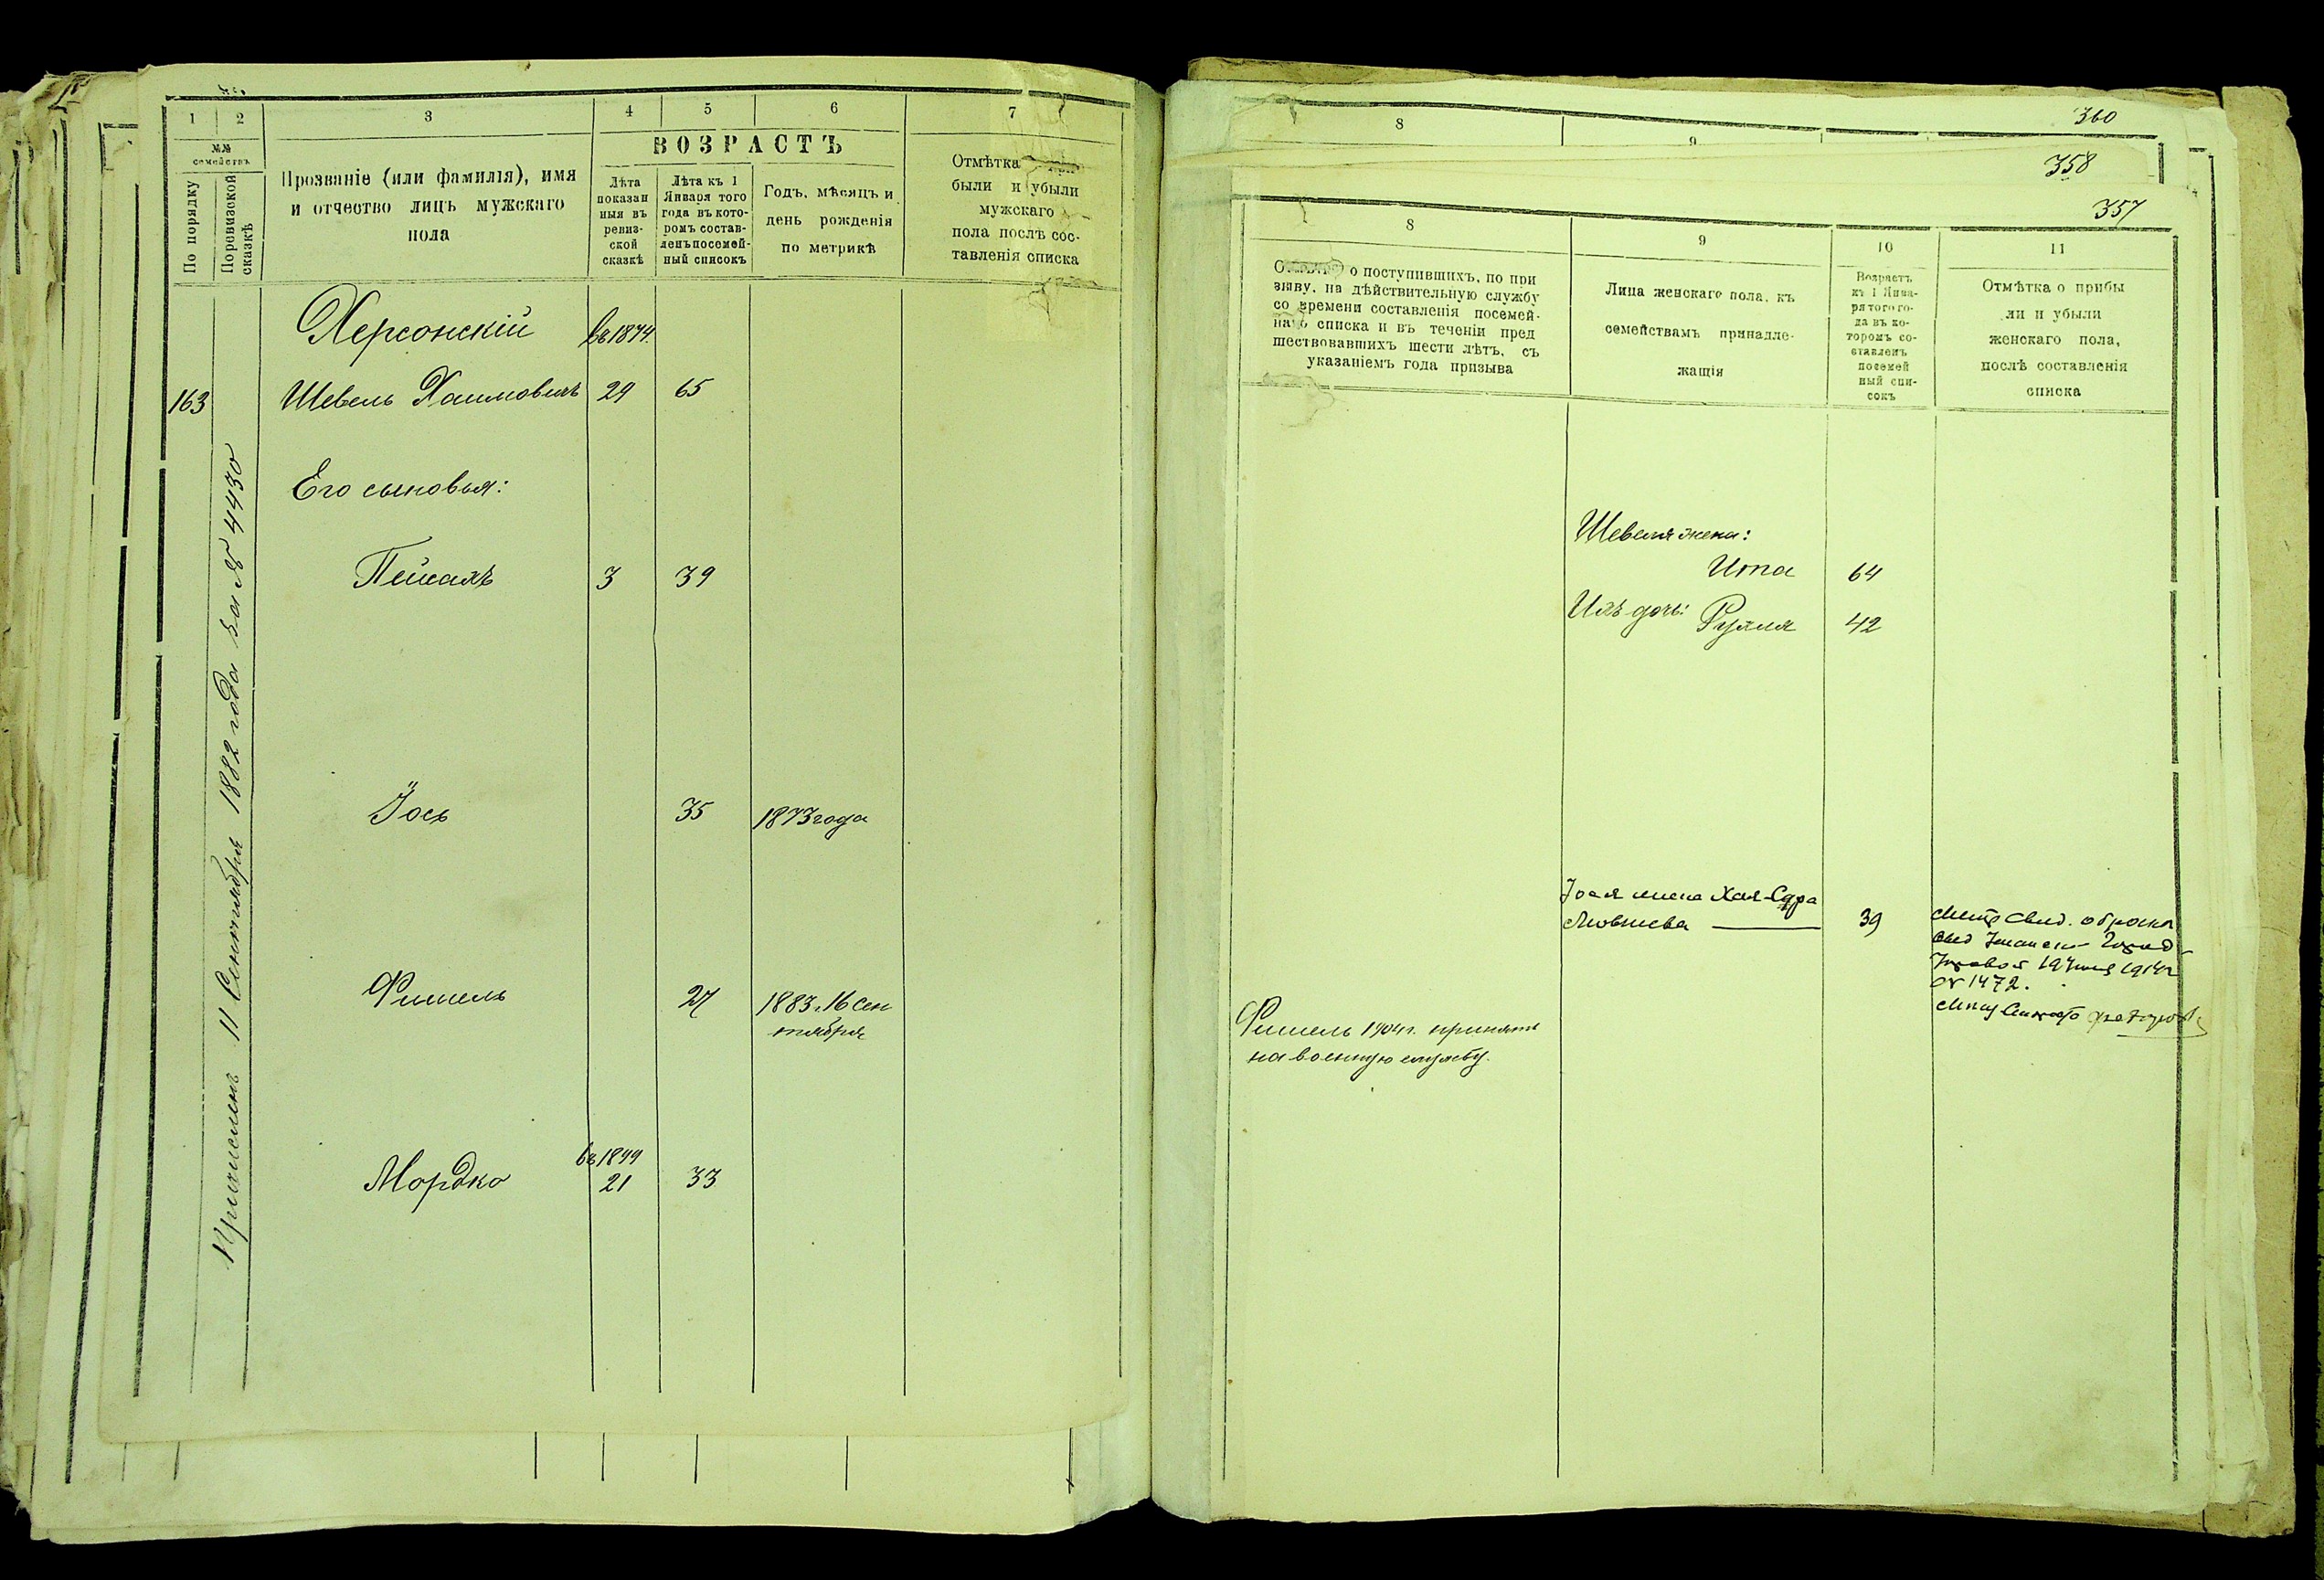 1
2
3
4
5
6
7
№№
семействъ
По порядку
Поревизской
сказкѣ
Прозваніе (или фамилія), имя
и отчество лицъ мужскаго
пола
ВОЗРАСТЪ
Лѣта
показан
ныя въ
ревиз-
ской
сказкѣ
Лѣта къ 1
Января того
года въ кото-
ромъ состав-
ленъ посемей-
ный списокъ
Годъ, мѣсяцъ и
день рожденія
по метрикѣ
Отмѣтка
были и убыли
мужскаго
пола послѣ сос-
тавленія списка
Херсонскій въ 1874.
163 Шевель Хаимовичъ 29 65
Его сыновья:
Пейсахъ 3 39
Іось 35 1873 года
Фишель 27 1883 г. 16 Сен
тября
въ 1899
Мордко 21 33
Причисленъ 11 Сентября 1882 года за № 4430
360
8
9
358
357
8
9
10
11
о поступившихъ, по при
зыву, на дѣйствительную службу
со времени составленія посемей-
наго списка и въ теченіи пред
шествовавшихъ шести лѣтъ, съ
указаніемъ года призыва
Лица женскаго пола, къ
семействамъ принадле-
жащія
Возрастъ
къ 1 Янва-
ря того го-
да въ ко-
торомъ со-
ставленъ
посемей
ный спи-
сокъ
Отмѣтка о прибы
ли и убыли
женскаго пола,
послѣ составленія
списка
Шевеля жена:
Ита 64
Ихъ дочь: Рухля 42
Іося жена Хая-Сура
39
свид. о брак
19 1914 г
№ 1472.
Фишель 1904 г. принятъ
на военную службу.